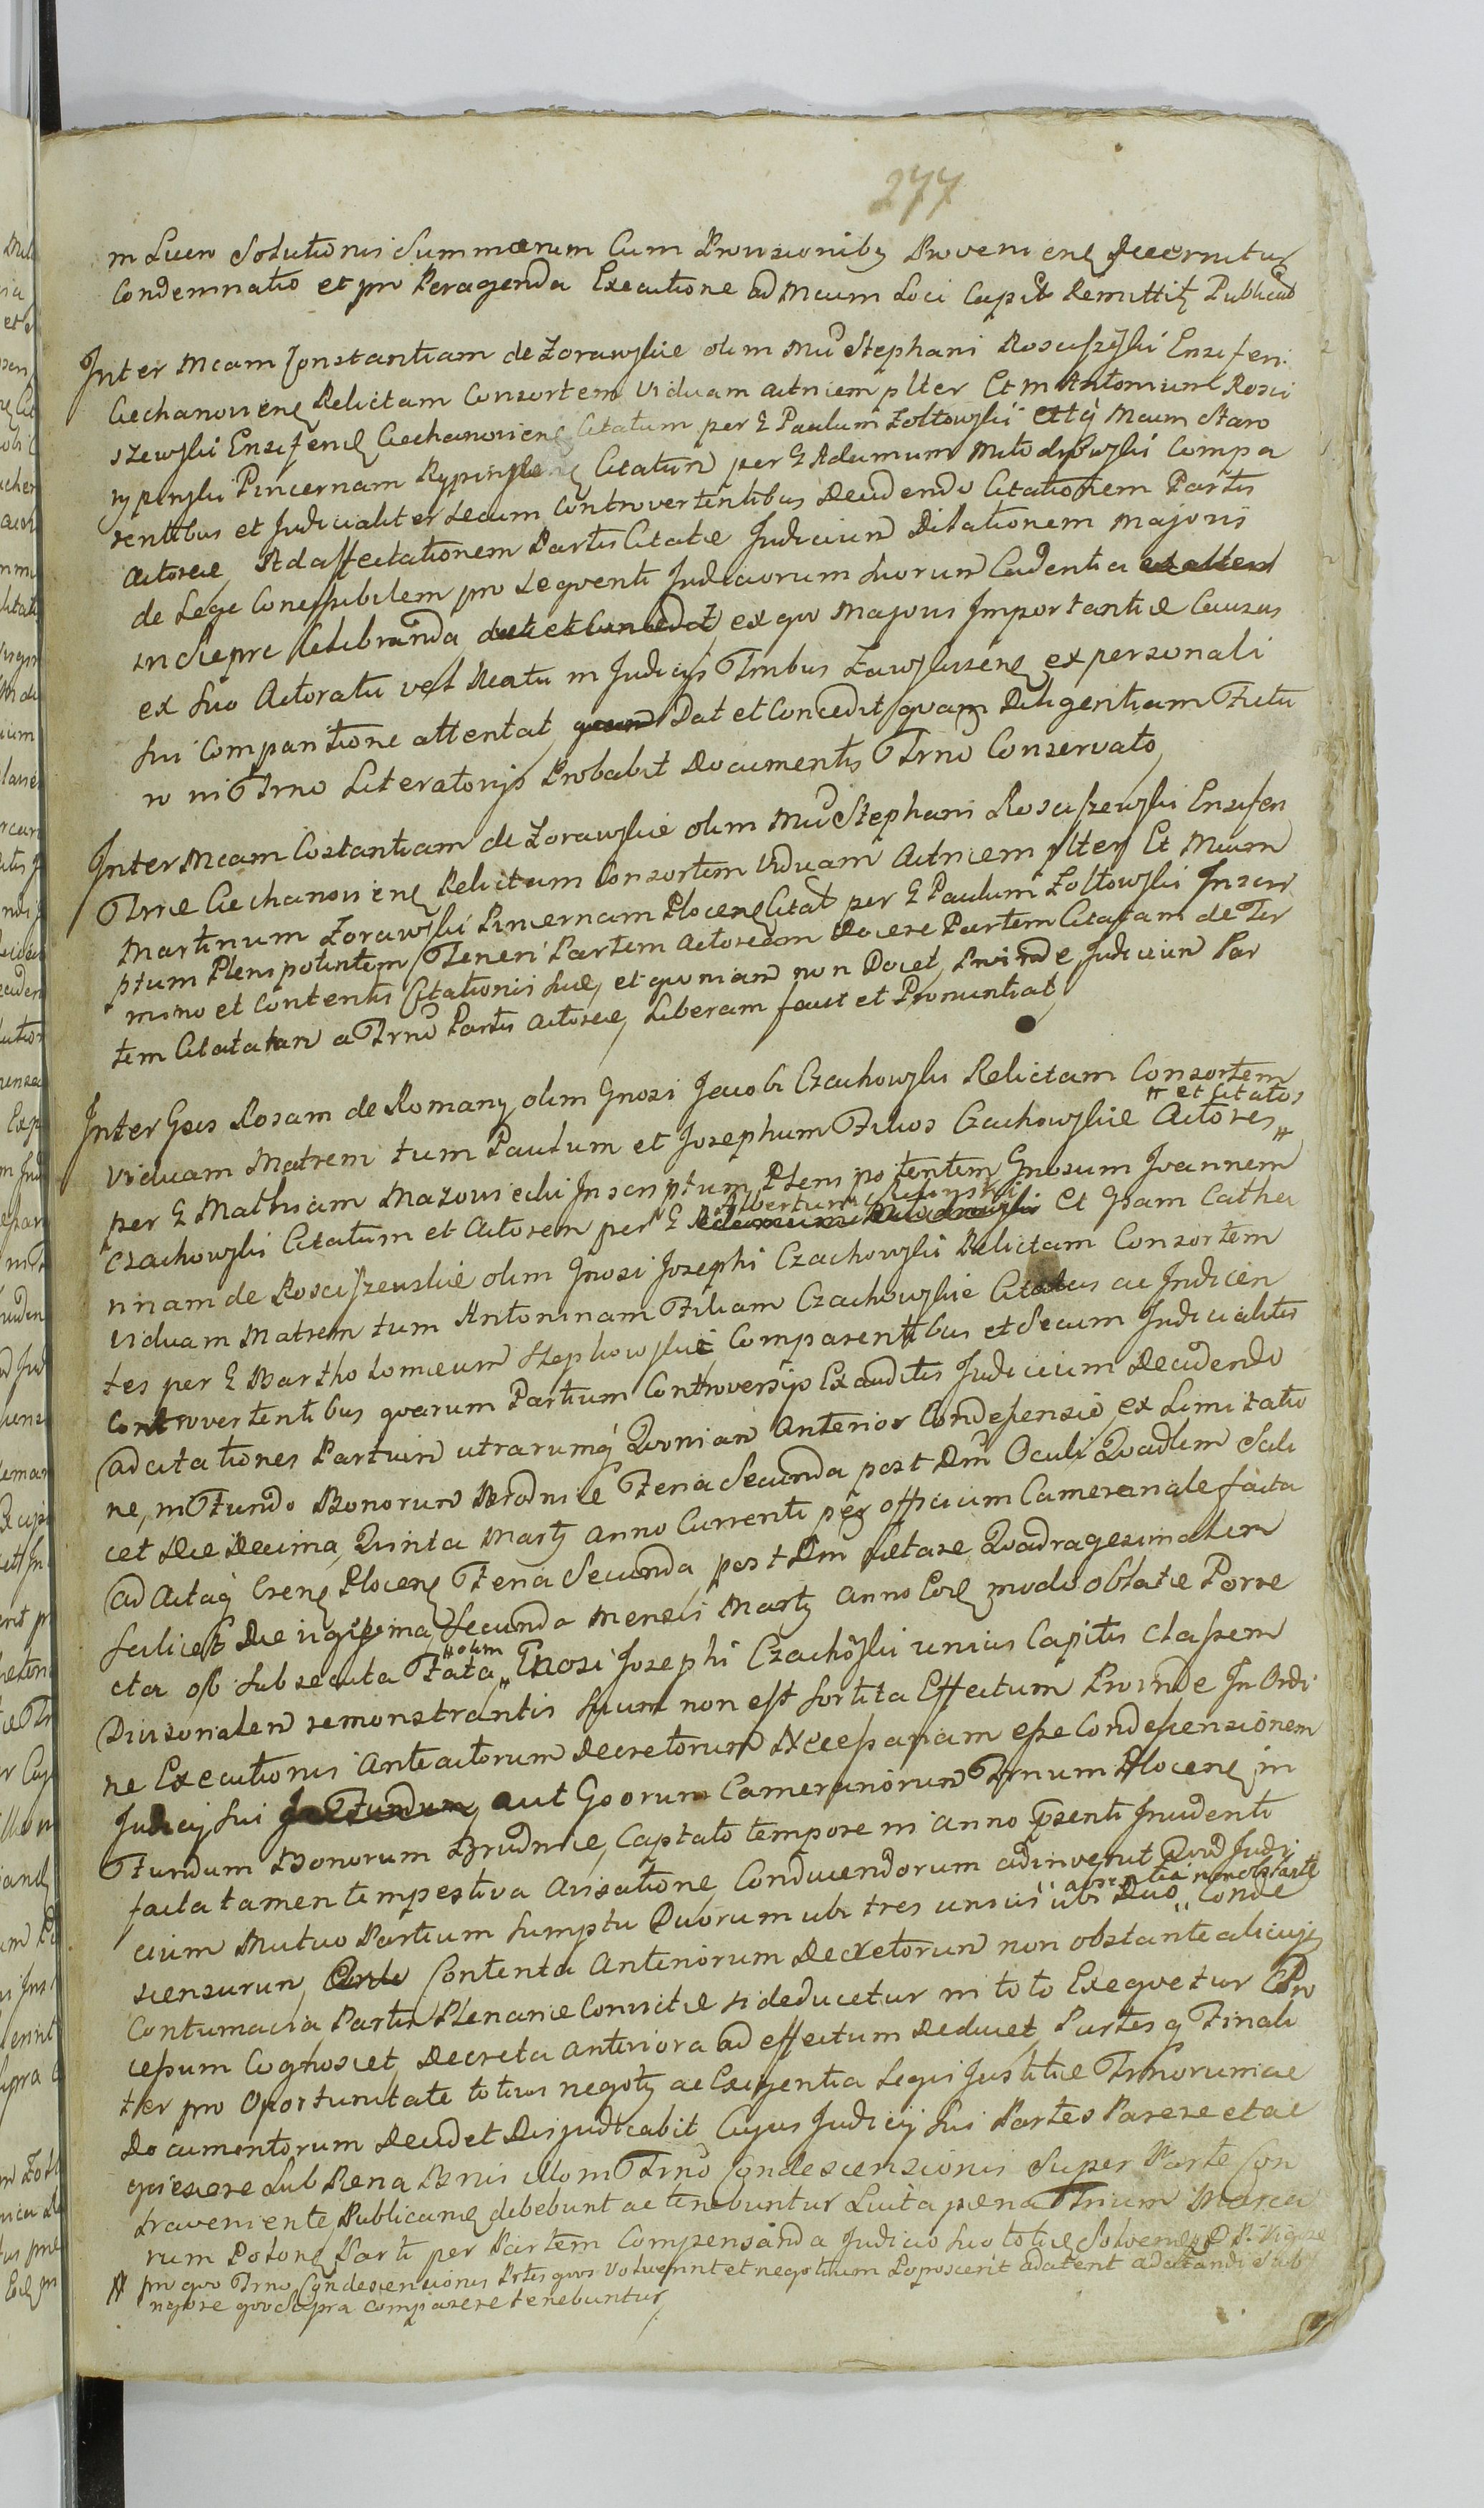 277
in Luen Solutionis Summarum Cum Provisionibq Provenienc decernitur
Condemnatio et pro Peragenda Executione ad Mcum Loci Capit Remittit Publicat
Inter Mcam Constantiam de Zorawskie olim Mci Stephani Roscisz̃ski Ensiferi
Ciechanoviens Relictam Consortem Viduam actricem plter Et M Antonium Rosci
szewski Ensifens Ciechanoviens Citatum per G Paulum Zołtowski ettq Mcum Staro
rypinski Pincernam Rypinens Citatum per G Adamum Młodybowski Compa
rentibus et Judicialiter Secum Controvertentibus Decidendo Citationem Partis
Actoreæ Ad affectationem Partis Citatæ Judicium Dilationem Majoris
de Lege Concessibilem pro Seqventi Judiciorum Suorum Cadentia
in Sierpc Celebranda ex qvo Majoris Importantiæ Causas
ex Suo Actoratu vel Reatu in Judicijs Trnbus Zawskrzens ex personali
Sui Comparitione attentat Dat et Concedit qvam Diligentiam Futu
ro in Trno Literatorijs Probabit Documentis Trno Conservato
Inter Mcam Costantiam de Zorawskie olim Mci Stephani Rosciszewski Ensifen
Trræ Ciechanoviens Relictam Consortem Viduam Actricem plter Et Mcum
Martinum Zorawski Pincernam Plocens Citat per G Paulum Zołtowski Inscri
ptum Plenipotentem Teneri Partem Actoream Docere Partem Citatam de Ter
mino et Contentis Citationis Suæ, et qvoniam non Docet Proinde Judicium Par
tem Citatam a Trno Partis Actoreæ Liberam facit et Pronuntiat
Inter Gsos Rosam de Romany olim Gnosi Jacobi Czachowski Relictam Consortem
et Citatos
Viduam Matrem tum Paulum et Josephum Filios Czachowskie Actores
per G Mathiam Mazowiecki Inscriptum Plenipotentem Gnosum Joannem
Albertum
Czachowski Citatum et Actorem per G Et Gsam Catha
rinam de Rosciszewskie olim Gnosi Josephi Czachowski Relictam Consortem
Viduam Matrem tum Antoninam Filiam Czachowskie Citatas ac Judicen
tes per G Bartholomæum Stepkowski Comparentibus et Secum Judicialiter
Controvertentibus qvarum Partium Controversijs Exauditis Judicium Decidendo
ad citationes Partium utrarumq Qvoniam Anterior Condescensio ex Limitatio
ne, in Fundo Bonorum Brodnice Feria Secunda post Dm Oculi Qvadlem Scili
cet Die Decima Qvinta Martij Anno Currenti per Officium Camerariale facta
ad Actaq Crens Plocens Feria Secunda post Dm Lætare Qvadragesimalem
scilicet Die vigesima Secunda Mensis Martij Anno Eod modo oblatæ Porre
olim
cta ob Subsecuta Fata Gnosi Josephi Czachoski unius Capitis Classem
Divisionalem remonstrantis Suum non est Sortita Effectum Proinde In Ordi
ne Executionis Anteactorum Decretorum Necessariam esse Condescensionem
Judicij Sui aut Gsorum Camerariorum Trnum Plocens in
Fundum Bonorum Brudnice, Captato tempore in Anno Præsenti Incidenti
facta tamen tempestiva Avisatione Conducendorum adinvenit Qvod Judi
absentia non obstante
cium Mutuo Partium Sumptu Duorum ubi tres unius ubi Duo Conde
scensurum Contenta Anteriorum Decretorum non obstante alicujs
Contumacia Partis Plenarie Convictæ si deducetur in toto Exeqvetur Pro
cessum Cognoscet, Decreta Anteriora ad effectum Deducet, Partes q Finali
ter pro Oportunitate totius negotij ac Exigentia Legis Justitiæ Trnorum ac
Documentorum Decidet Disjudicabit Cujus Judicij Sui Partes Parere et ac
qviescere Sub Pæna Bnis illo in Trno Condescensionis Super Parte Con
traveniente, Publicans debebunt ac tenebuntur Luita pæna Trium Marca
rum Polons Parti per Partem Compensanda Judicio Suo toties Solvens
pro qvo Trno Condescensionis Prtes qvos Voluerint et negotium Poposcerit adcitent adcitandi Sub
rigore qvo Supra Comparere tenebuntur